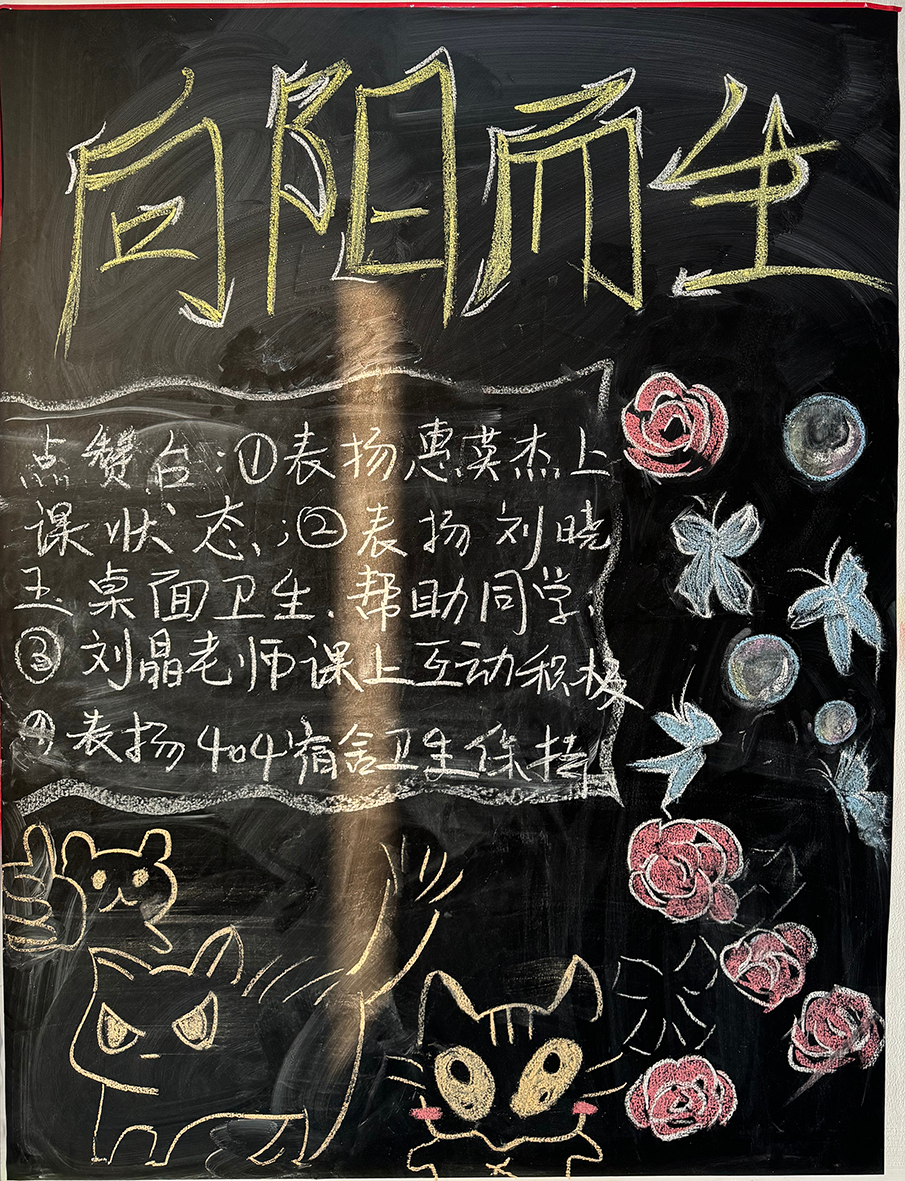 向阳而生
点赞台:①表扬惠英杰上
课状态、;②表扬刘晓
玉桌面卫生、帮助同学、
③刘晶老师课上互动积极
④表扬404宿舍卫生保持